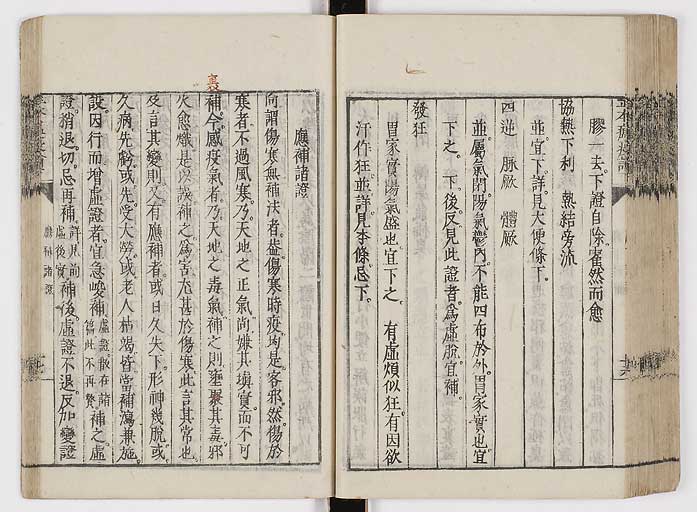 膠一去。下證自除。霍然而愈
協熱下利　熱結旁流
並宜下。詳見大便條下。
四逆　脉厥　體厥
並屬氣閉。陽氣鬱內。不能四布於外。胃家實也。宜
下之。下後反見此證者。為虛脫。宜補。
發狂
胃家實。陽氣盛也。宜下之　有虛煩似狂。有因欲
汗作狂。並詳見本條。忌下。
應補諸證
向謂傷寒無補法者。盖傷寒時疫。均是客邪。然傷於
寒者。不過風寒。乃天地之正氣。尚嫌其填實而不可
補。今感疫氣者。乃天地之毒氣。補之則壅裹其毒。邪
火愈熾。是以誤補之為害。尤甚於傷寒。此言其常也
及言其變。則又有應補者。或日久失下。形神幾脫。或
久病先虧。或先受大勞。或老人枯竭。皆當補瀉兼施。
設因行而增虛證者。宜急峻補。虛證散在諸篇。此不再贅。補之虛
證稍退。切忌再補。詳見前虛後實。補後。虛證不退。反加變證
應補諸證
裹